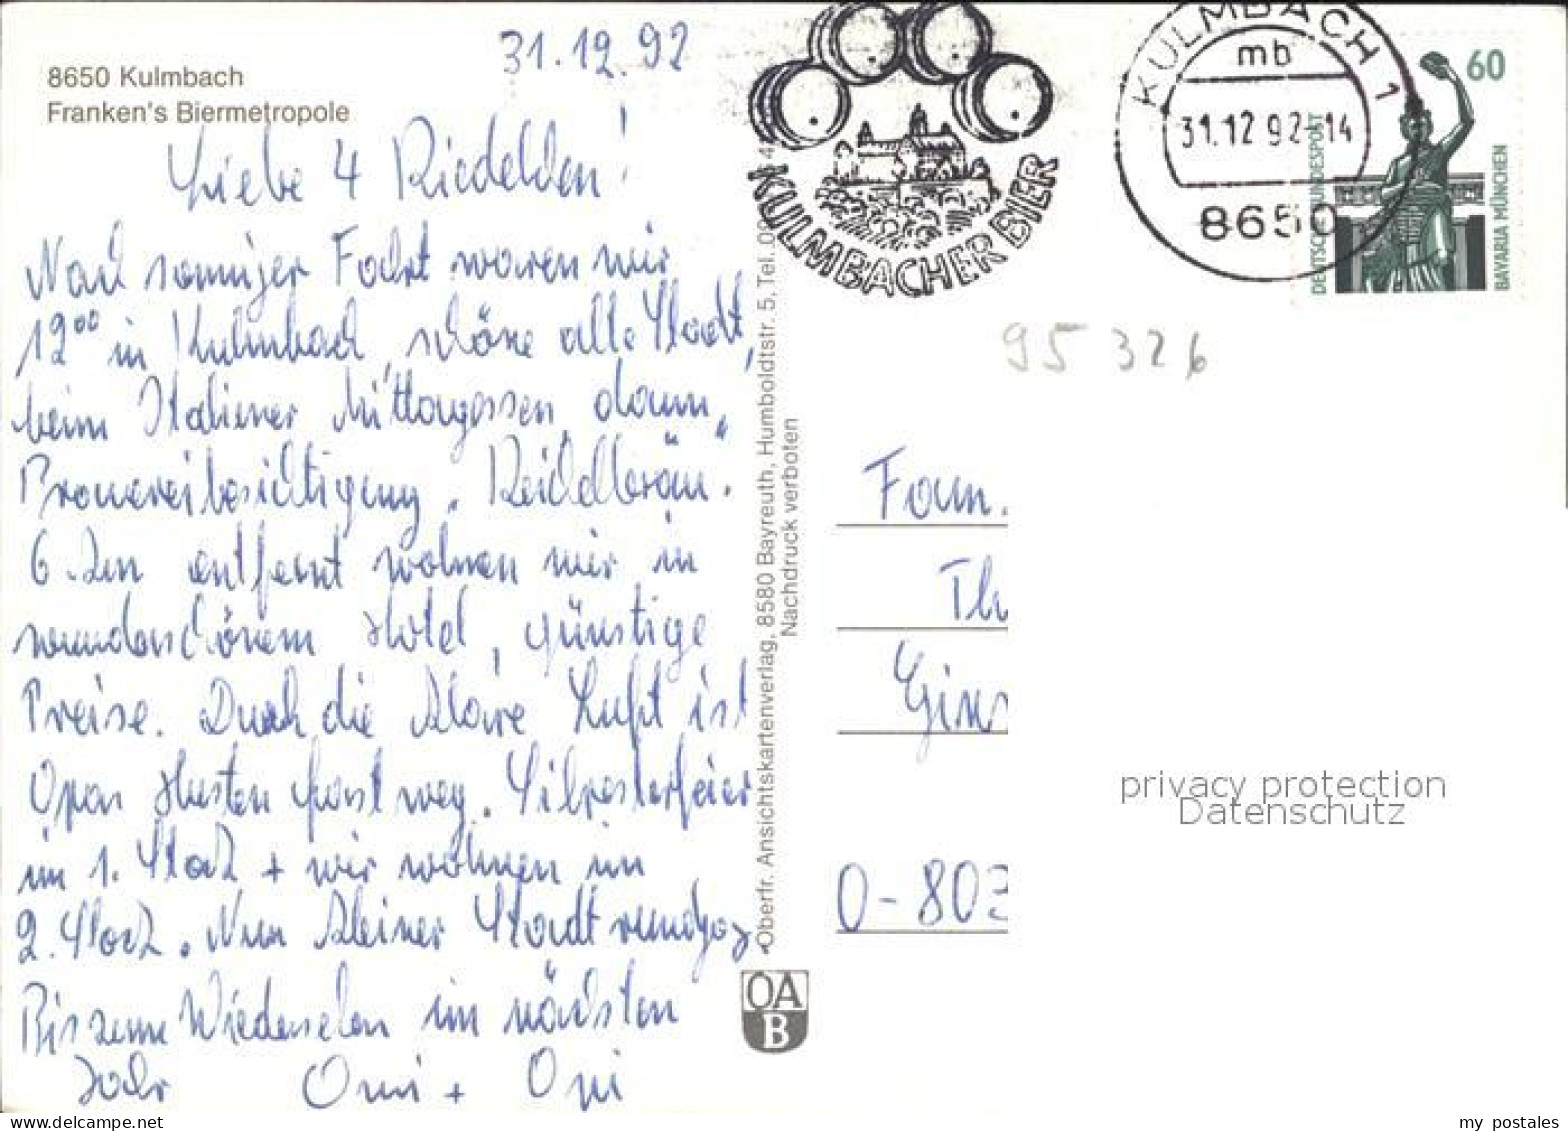 8650 Kulmbach
Franken's Biermetropole
31.12.92
Liebe 4 Riedelden!
Nach sonniger Fahrt waren wir
12⁰⁰ in Kulmbach, schöne alte Stadt,
beim Italiener Mittagessen, dann
Brauereibesichtigung „Reichelbräu".
6 km entfernt wohnen wir in
wunderschönem Hotel, günstige
Preise. Durch die klare Luft ist
Opas Husten fast weg. Silvesterfeier
im 1. Stock + wir wohnen im
2. Stock. Nun kleiner Stadtrundgang.
Bis zum Wiedersehen im nächsten
Jahr Omi + Opi
Oberfr. Ansichtskartenverlag, 8580 Bayreuth, Humboldtstr. 5, Tel. 09
Nachdruck verboten
OA
B
KULMBACHER BIER
KULMBACH 1
mb
31.12.92-14
8650
60
DEUTSCHE BUNDESPOST
BAVARIA MÜNCHEN
95 326
Fam.
Th
Gins
0-803
privacy protection
Datenschutz
my postales